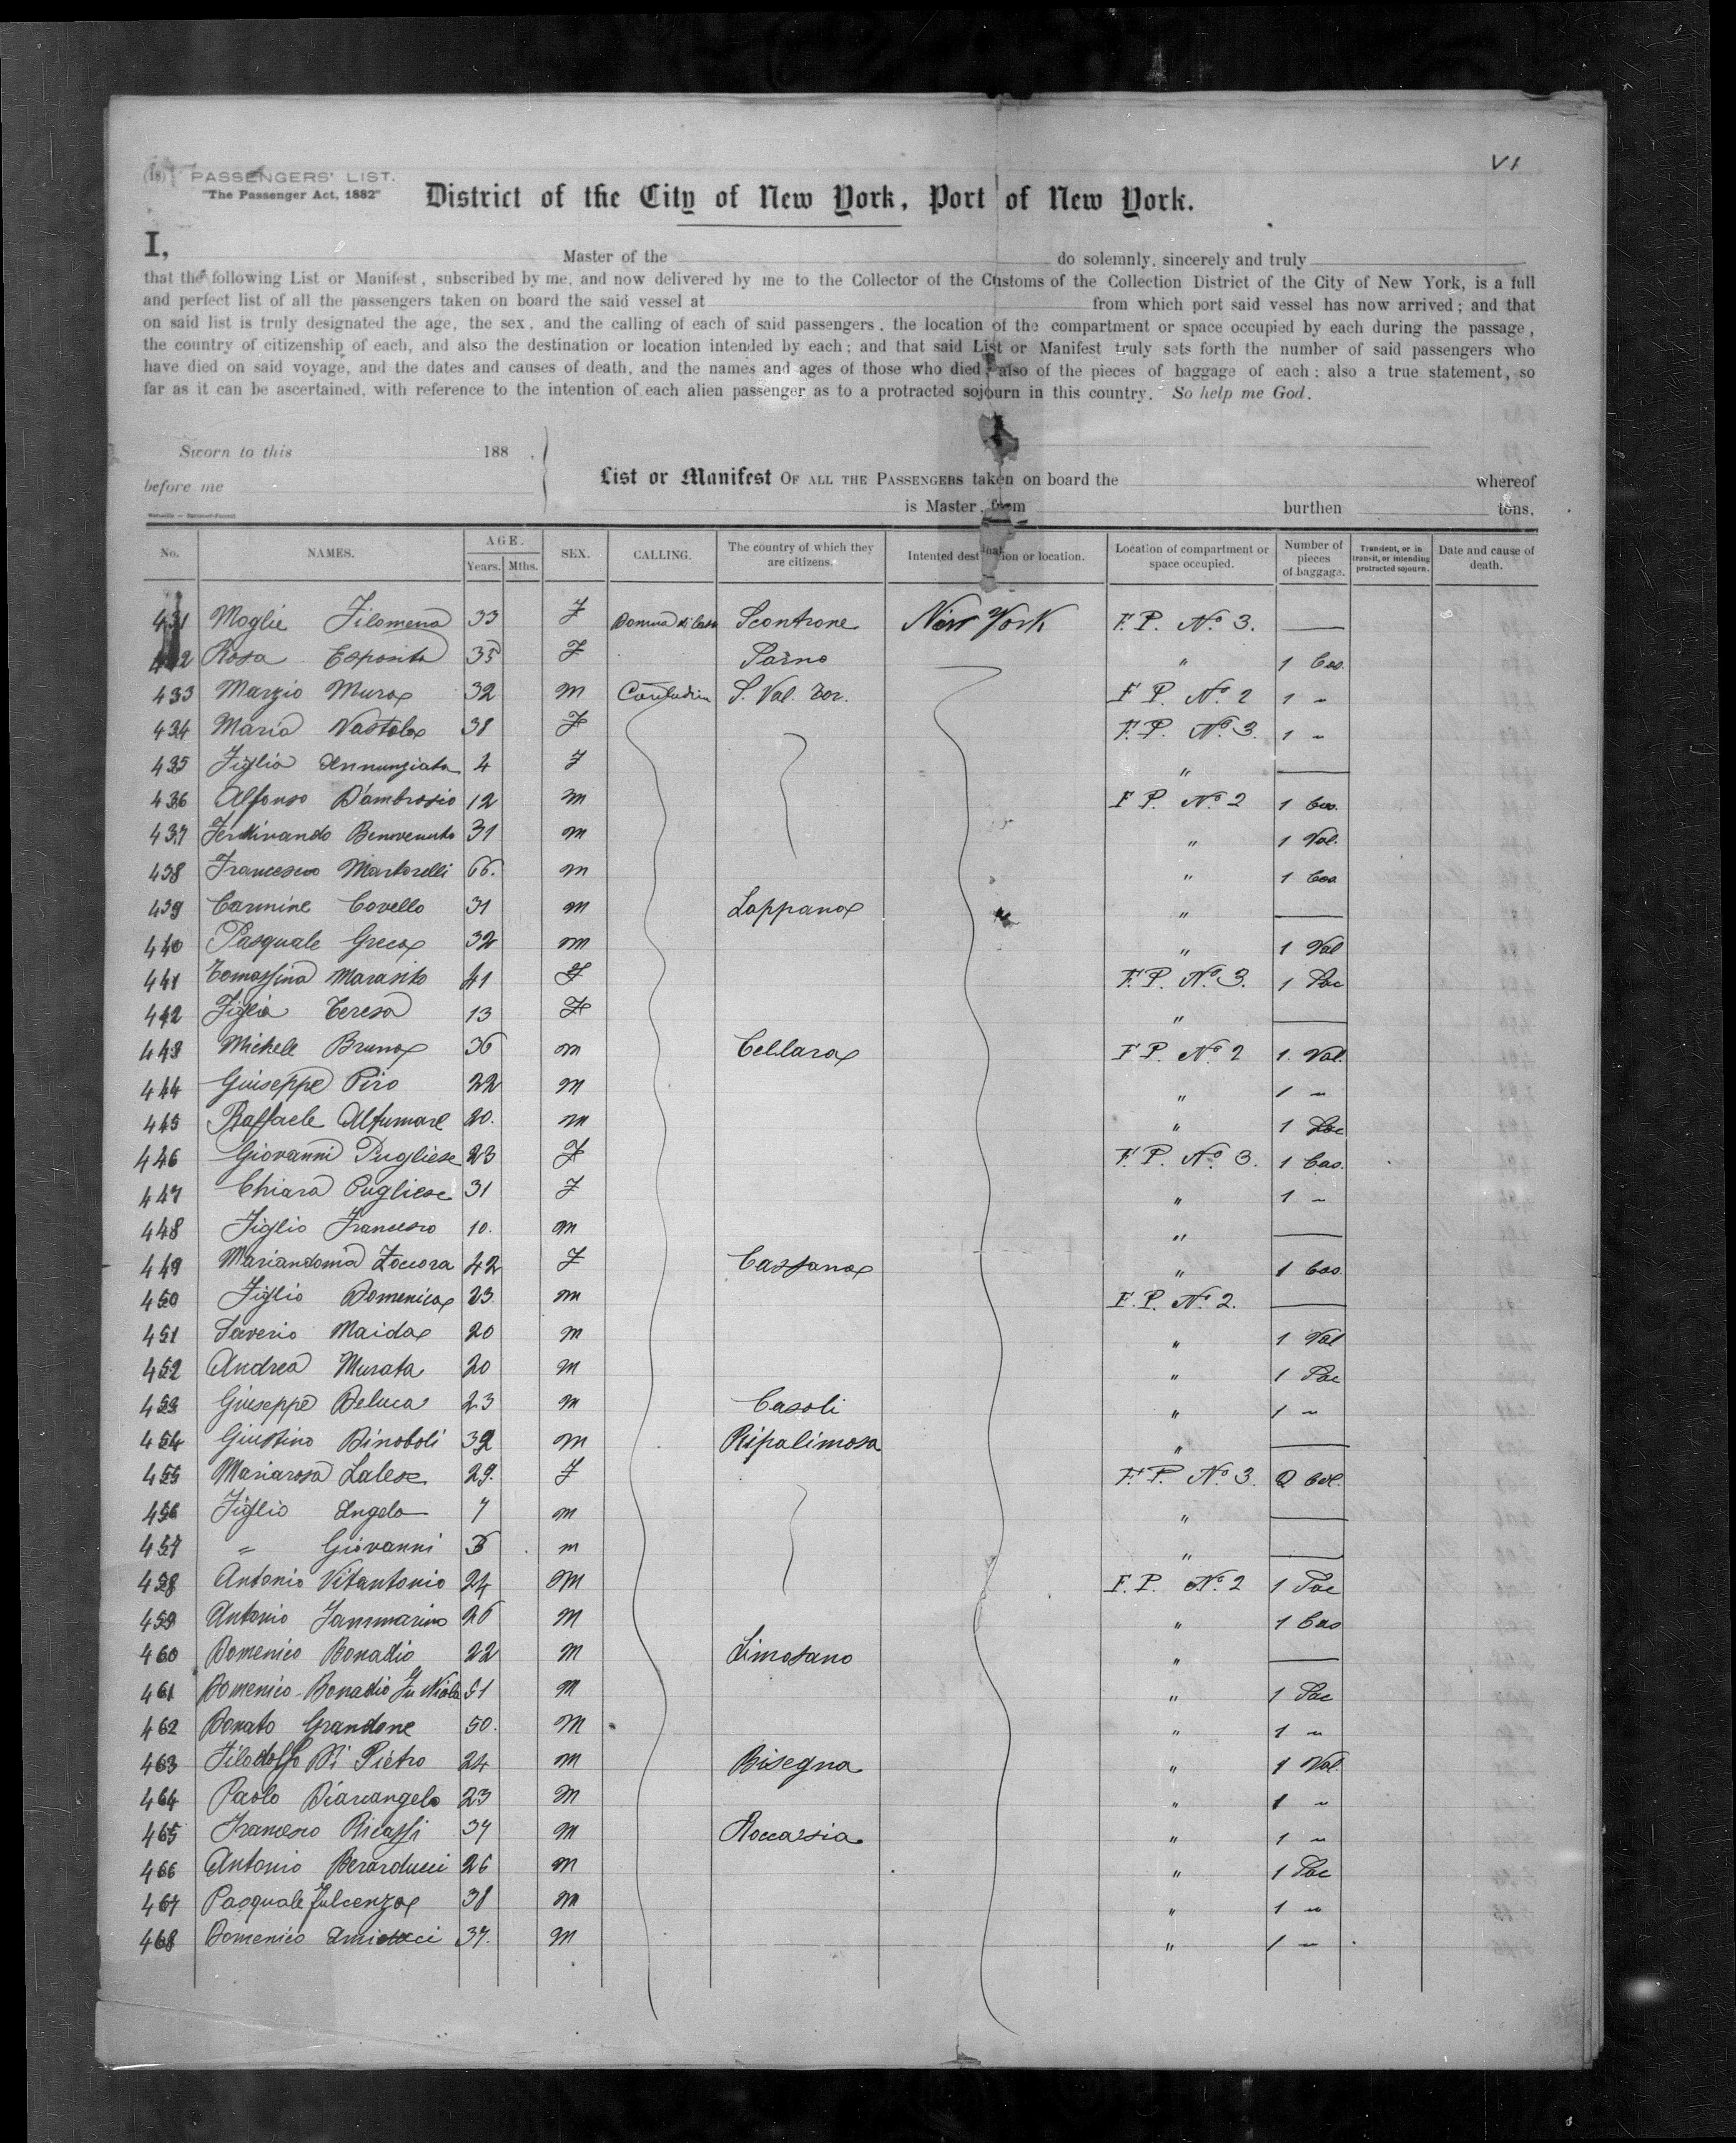 VI
(18) PASSENGERS' LIST.
"The Passenger Act, 1882"
District of the City of New York, Port of New York.
I, Master of the do solemnly, sincerely and truly
that the following List or Manifest, subscribed by me, and now delivered by me to the Collector of the Customs of the Collection District of the City of New York, is a full
and perfect list of all the passengers taken on board the said vessel at from which port said vessel has now arrived; and that
on said list is truly designated the age, the sex, and the calling of each of said passengers, the location of the compartment or space occupied by each during the passage,
the country of citizenship of each, and also the destination or location intended by each; and that said List or Manifest truly sets forth the number of said passengers who
have died on said voyage, and the dates and causes of death, and the names and ages of those who died; also of the pieces of baggage of each; also a true statement, so
far as it can be ascertained, with reference to the intention of each alien passenger as to a protracted sojourn in this country. So help me God.
Sworn to this 188 .
before me
List or Manifest OF ALL THE PASSENGERS taken on board the whereof
is Master, from burthen tons.
No. NAMES. AGE. Years. Mths. SEX. CALLING. The country of which they are citizens. Intented destination or location. Location of compartment or space occupied. Number of pieces of baggage. Transient, or in transit, or intending protracted sojourn. Date and cause of death.
431 Moglie Filomena 33 F Donna di Casa Scontrone New York F.P. No. 3. —
432 Rosa Esposito 35 F Sarno " 1 Cas.
433 Marzio Muro 32 M Contadin S. Val. Tor. F P. No. 2 1 "
434 Maria Nastola 38 F F.P. No. 3. 1 "
435 Figlia Annunziata 4 F " —
436 Alfonso D'ambrosio 12 M F P. No. 2 1 Cas.
437 Ferdinando Benvenuto 31 M " 1 Val.
438 Francesco Martorelli 66. M " 1 Cas
439 Carmine Covello 31 M Lappano " —
440 Pasquale Greco 32 M " 1 Val
441 Tomassina Marasito 41 F F.P. No. 3. 1 Sac
442 Figlia Teresa 13 F " —
443 Michele Bruno 36 M Cellara F P. No. 2 1. Val.
444 Giuseppe Piro 22 M " 1 "
445 Raffaele Altumare 20. M " 1 Sac
446 Giovanni Pugliese 23 F F.P. No. 3. 1 Cas.
447 Chiara Pugliese 31 F " 1 "
448 Figlio Francesco 10. M " —
449 Mariandonia Zoccora 42 F Cassano " 1 Cas.
450 Figlio Domenico 23. M F.P. No. 2. —
451 Saverio Maida 20 M " 1 Val
452 Andrea Murata 20 M " 1 Sac
453 Giuseppe Deluca 23 M Casoli " 1 "
454 Giustino Dinoboli 32 M Ripalimosa " —
455 Mariarosa Lalese 29. F F.P. No. 3. 2 Col.
456 Figlio Angelo 7 M " —
457 " Giovanni 3 M " —
458 Antonio Vitantonio 24 M F.P. No. 2 1 Sac
459 Antonio Jammarino 26 M " 1 Cas
460 Domenico Bonadio 22 M Limosano " —
461 Domenico Bonadio Fu Nicola 51 M " 1 Sac
462 Donato Grandone 50. M " 1 "
463 Filodolfo Di Pietro 24 M Bisegna " 1 Val.
464 Paolo Diarcangelo 23 M " 1 "
465 Francesco Ricassi 34 M Roccasia " 1 "
466 Antonio Berarducci 26 M " 1 Sac
467 Pasquale Fulcenzo 38 M " 1 "
468 Domenico 37. M " 1 "